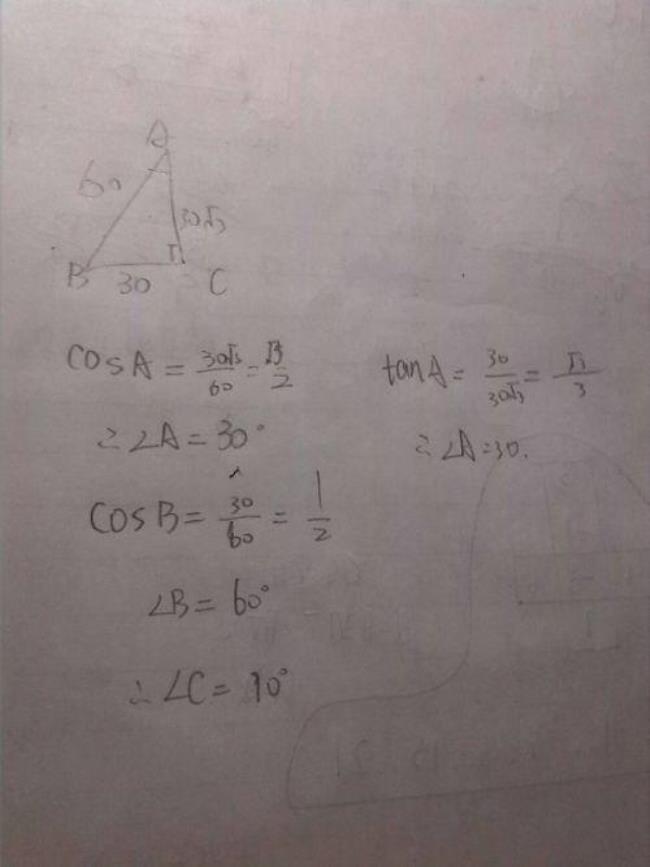 A
60
30√3
B
30
C
cosA = 30√3/60 = √3/2
∴ ∠A = 30°
cosB = 30/60 = 1/2
∠B = 60°
∴ ∠C = 90°
tanA = 30/30√3 = √3/3
∴ ∠A = 30.